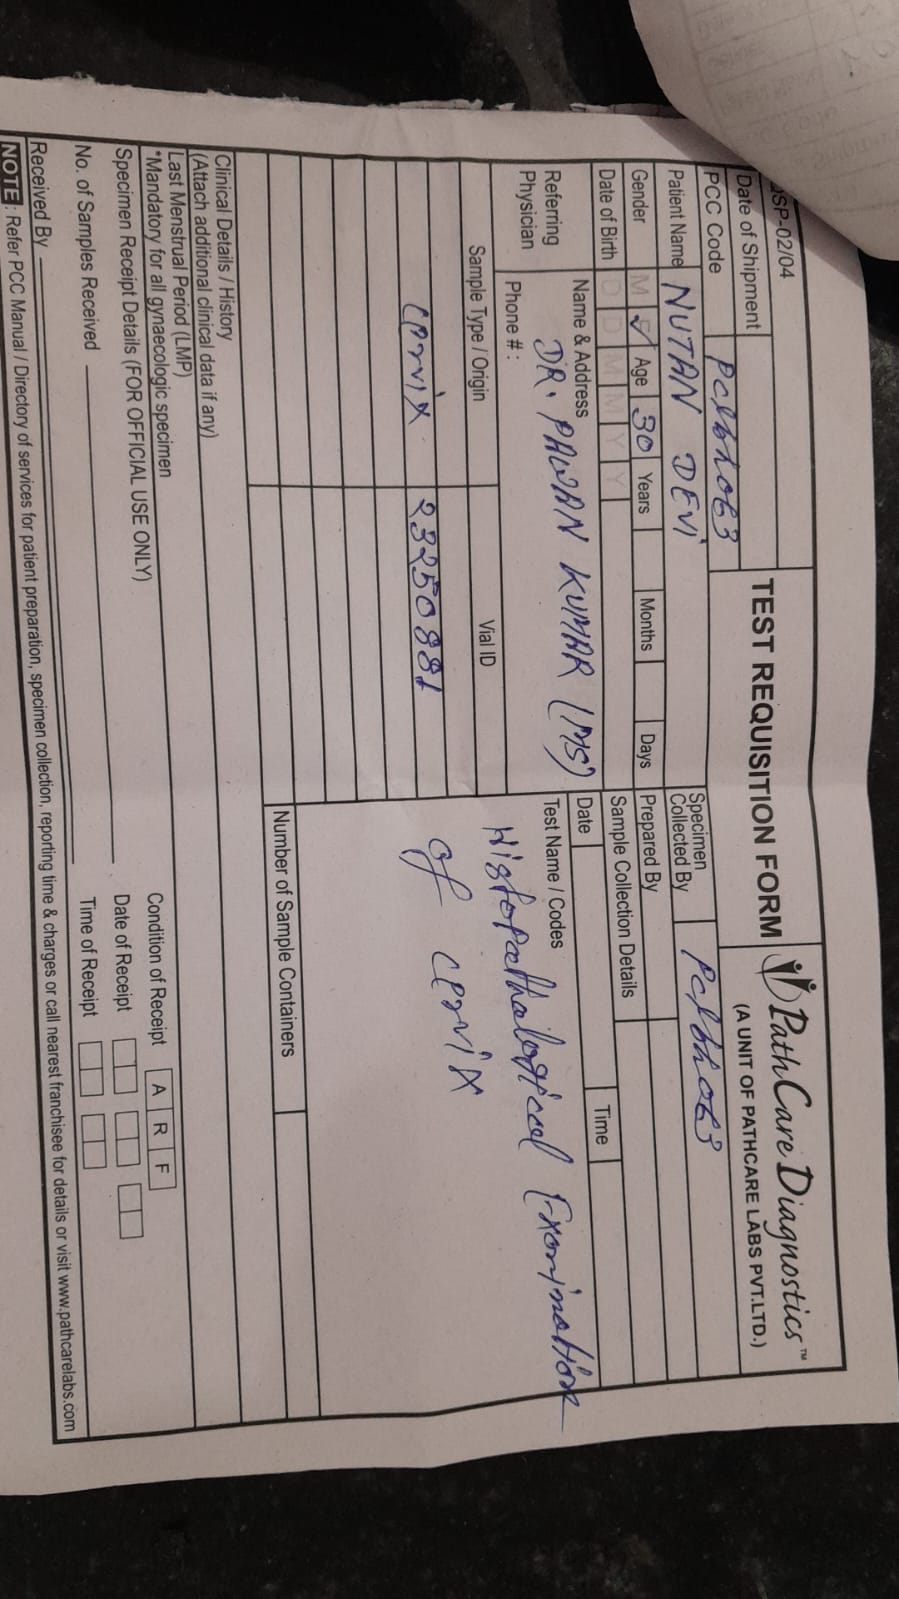 QSP-02/04
TEST REQUISITION FORM
PathCare Diagnostics™
(A UNIT OF PATHCARE LABS PVT.LTD.)
Date of Shipment
PCC Code
Patient Name NUTAN DEVI
Specimen Collected By
Gender M F ✓ Age 30 Years Months Days
Prepared By
Date of Birth D D M M Y Y
Sample Collection Details
Date Time
Referring Physician
Name & Address
DR. PAWAN KUMAR (MS)
Phone # :
Test Name / Codes
Histopathological Examination
of cervix
Sample Type / Origin Vial ID
cervix 23250881
Number of Sample Containers
Clinical Details / History
(Attach additional clinical data if any)
Last Menstrual Period (LMP)
*Mandatory for all gynaecologic specimen
Specimen Receipt Details (FOR OFFICIAL USE ONLY)
Condition of Receipt A R F
No. of Samples Received
Date of Receipt
Received By
Time of Receipt
NOTE : Refer PCC Manual / Directory of services for patient preparation, specimen collection, reporting time & charges or call nearest franchisee for details or visit www.pathcarelabs.com